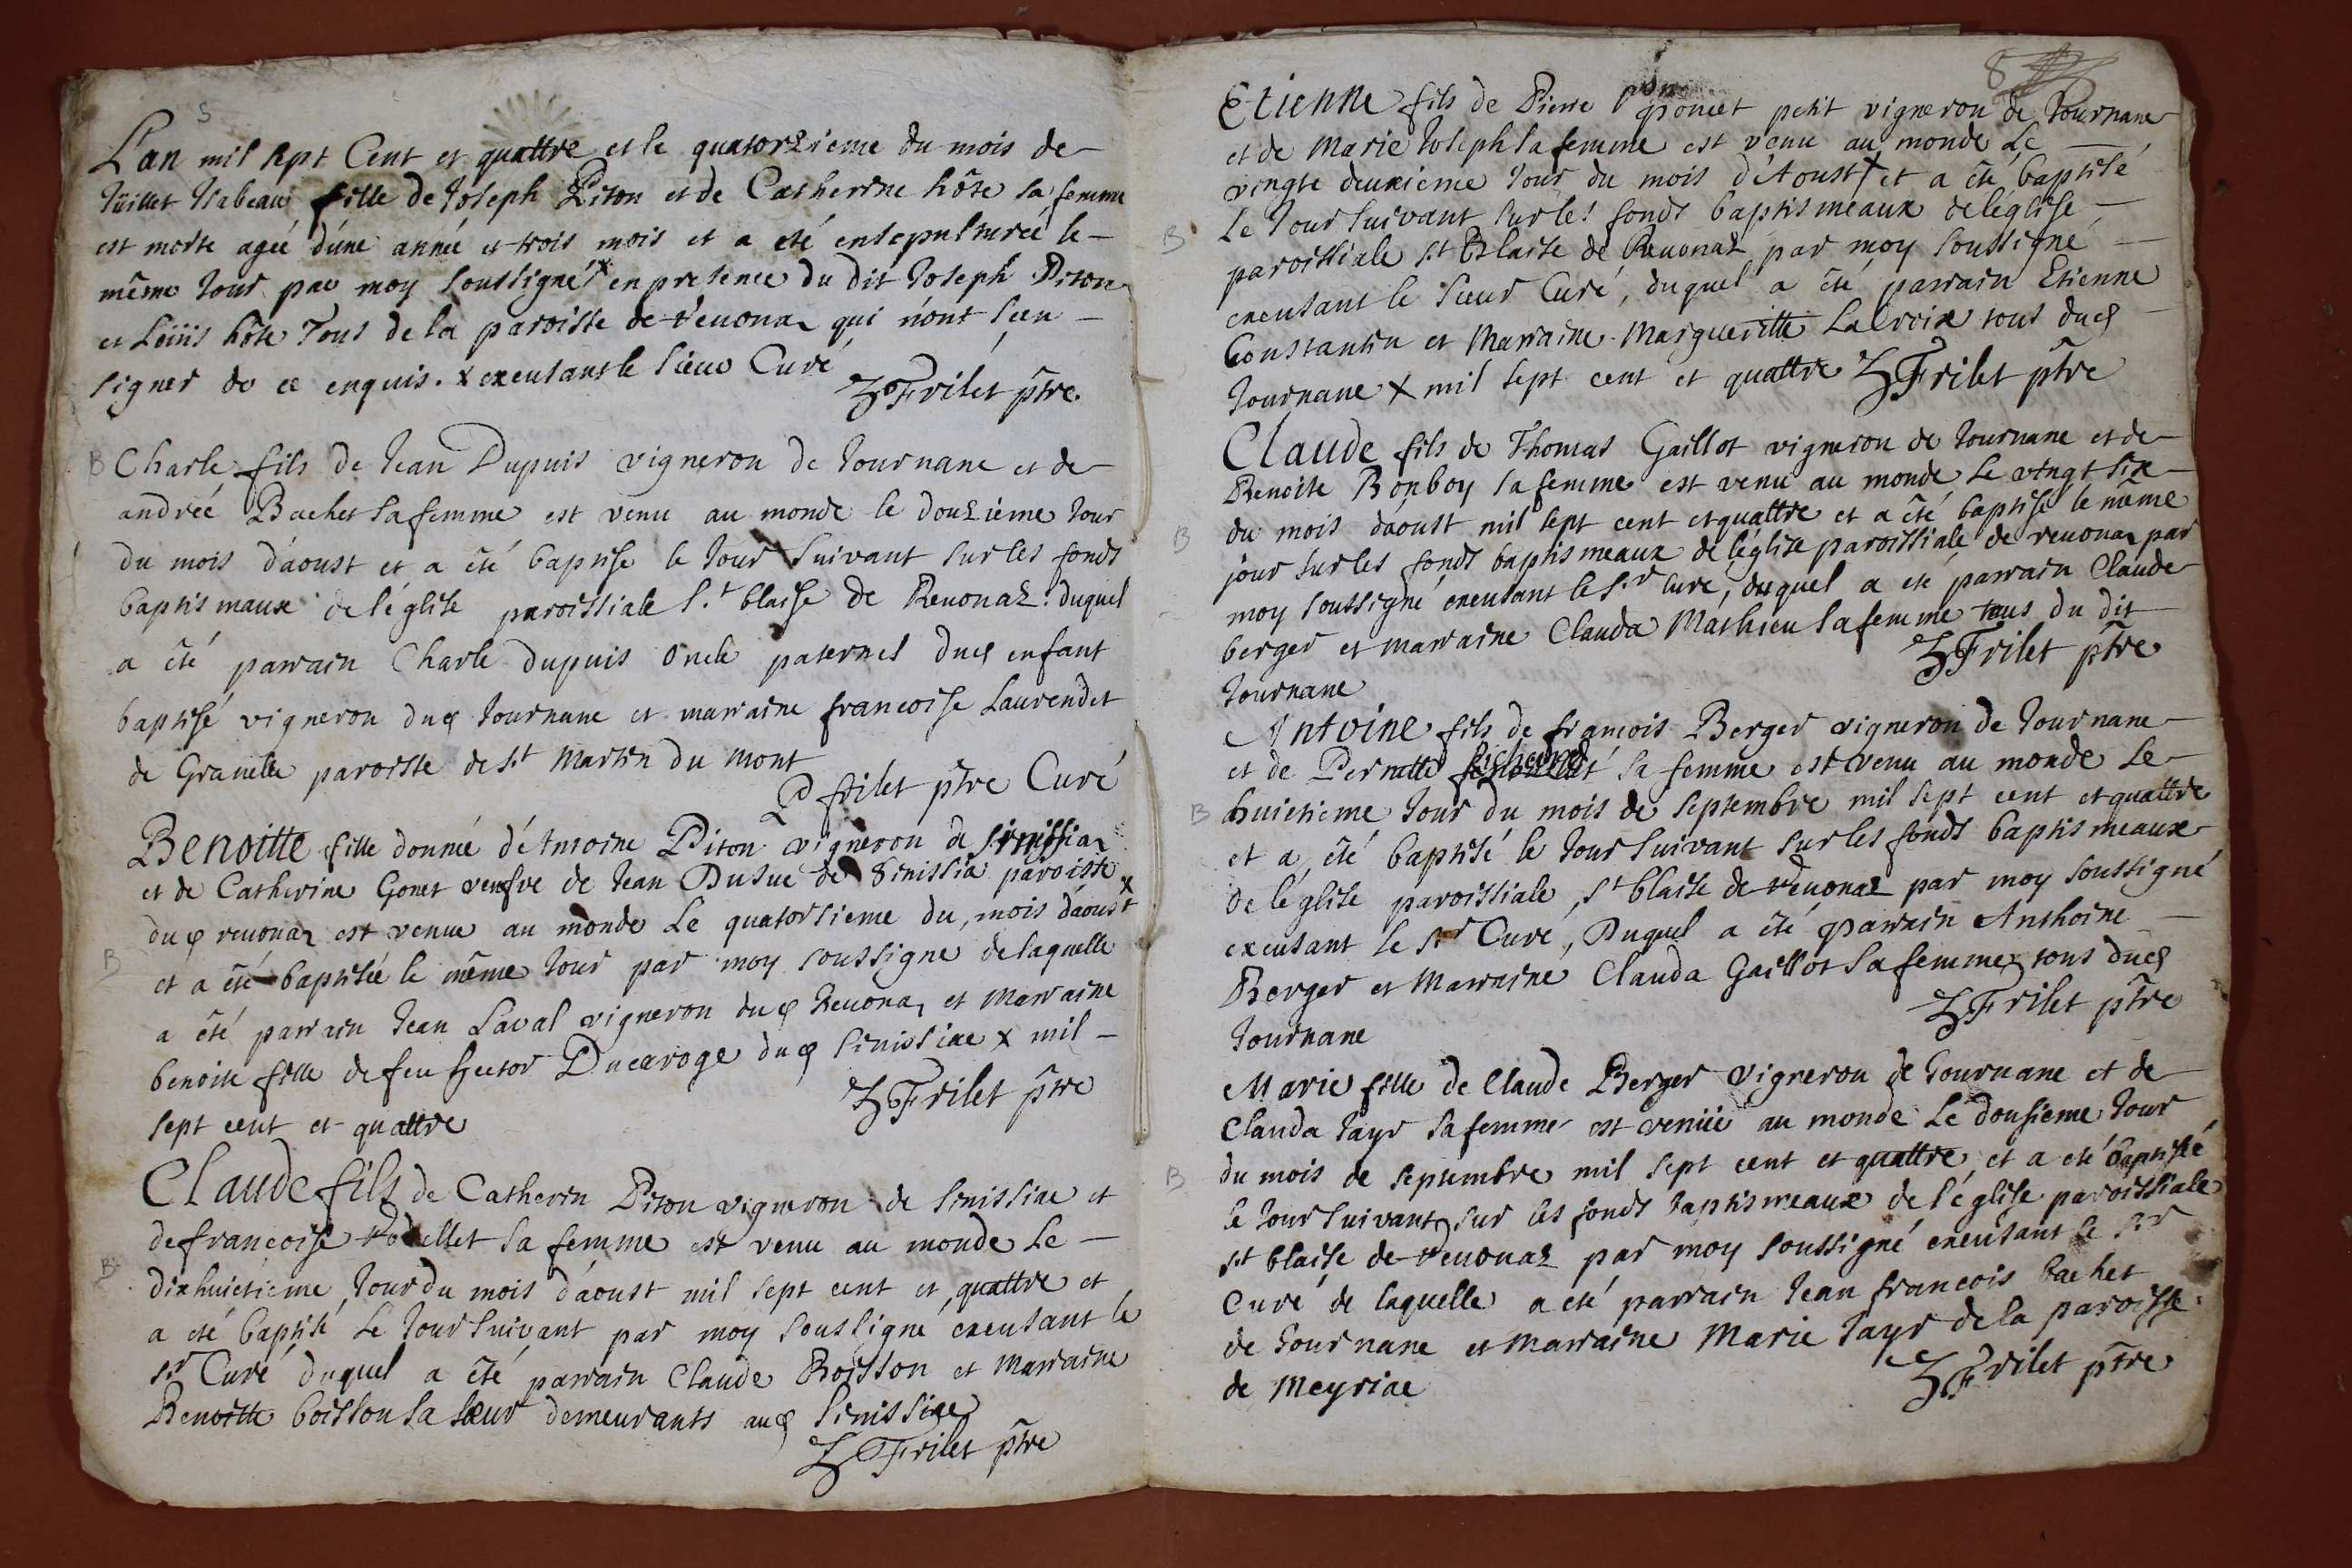 S
L'an mil sept Cent et quattre et le quatorzieme du mois de
Jüillet Isabeau fille de Joseph Piton et de Catherine hôte sa femme
est morte agée d'une année et trois mois et a eté ensepulturée le
même Jour par moy soussigné x en presence du dit Joseph Piton
et Loüis hôte Tous de la paroisse de Reuonaz qui n'ont sceu
signer de ce enquis. x excusant le sieur Curé
Frilet ptre.
B Charle fils de Jean Dupuis vigneron de Journane et de
andréé Bachet sa femme est venu au monde le douzieme Jour
du mois d'aoust et a été baptisé le Jour suivant sur les fonds
baptismaux de l'églîse paroissiale s.t blaise de Reuonaz. duquel
a été parrain Charle dupuis oncle paternel dud enfant
baptisé vigneron dud Journane et marraine francoise Laurendet
de Granelle paroisse de st Martin du mont
P frilet ptre Curé
Benoitte fille donnée d'Antoine Piton vigneron de sinissiaz
et de Catherine Gonet veufve de Jean Dusuc de Sinissia paroisse
dud reuonaz est venue au monde Le quatorsieme du mois d'aoust x
B
et a été baptisée le même Jour par moy soussigné de laquelle
a été parrain Jean Laval vigneron dud Reuonaz et marraine
benoite fille de feu hector Ducaroge dud sinissiac x mil
sept cent et quattre
Frilet ptre
Claude fils de Catherin Piton vigneron de sinissiac et
de francoise Rodellet sa femme est venu au monde Le
B
dixhuictieme Jour du mois d'aoust mil sept cent et quattre et
a eté baptisé Le Jour suivant par moy soussigné excusant le
sr Curé duquel a été parrain Claude Boisson et marraine
Benoitte boisson sa sœur demeurants aud Sinissiac
Frilet ptre
8
Etienne fils de Pierre poncet petit vigneron de Journane
et de Marie Joseph sa femme est venu au monde Le
vingte deuxieme Jour du mois d'Aoust x et a été baptisé
B
Le Jour suivant sur les fonds baptismeaux de léglise
paroissiale s.t Blaise de Reuonaz par moy soussigné
excusant le sieur Curé, duquel a été parrain Etienne
Constantin et Marraine Margueritte Lacroix tous dud
Journane x mil sept cent et quattre Frilet ptre
Claude fils de Thomas Gaillot vigneron de Journane et de
Benoite Bonboy sa femme est venu au monde Le vingt six
B
du mois d'aoust mil sept cent et quattre et a été baptisé le même
jour sur les fonds baptismeaux de léglise paroissiale de reuonaz par
moy soussigné excusant le s.r Curé, duquel a été parrain Claude
berger et marraine Clauda Mathieu sa femme tous du dit
Journane
Frilet ptre
Antoine fils de francois Berger vigneron de Journane
et de Pernette sa femme est venu au monde Le
B huictieme Jour du mois de Septembre mil sept cent et quattre
et a été baptisé le Jour suivant sur les fonds baptismeaux
de léglise paroissiale, st blaise de Reuonaz par moy soussigné
excusant le sr Curé, Duquel a été parrain Anthoine
Berger et Marraine Clauda Gaillot sa femme tous dud
Journane
Frilet ptre
Marie fille de Claude Berger vigneron de Journane et de
Clauda Jayr sa femme est venüe au monde Le dousieme Jour
B
du mois de septembre mil sept cent et quattre, et a eté baptisée
le Jour suivant sur les fonds baptismeaux de l'église paroissiale
st blaise de Reuonaz par moy soussigné excusant le sr
Curé de laquelle a été parrain Jean francois bachet
de Journane et marraine Marie Jayr de la paroisse
de Meyriac
Frilet ptre